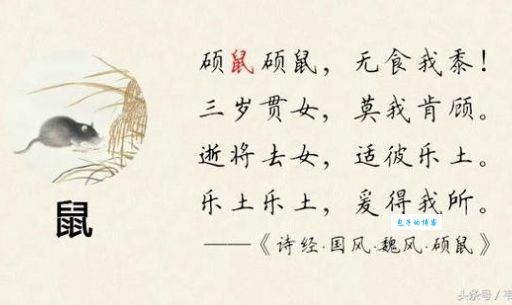 硕鼠硕鼠，无食我黍！
三岁贯女，莫我肯顾。
逝将去女，适彼乐土。
乐土乐土，爰得我所。
——《诗经·国风·魏风·硕鼠》
鼠
包子的博客
头条号／